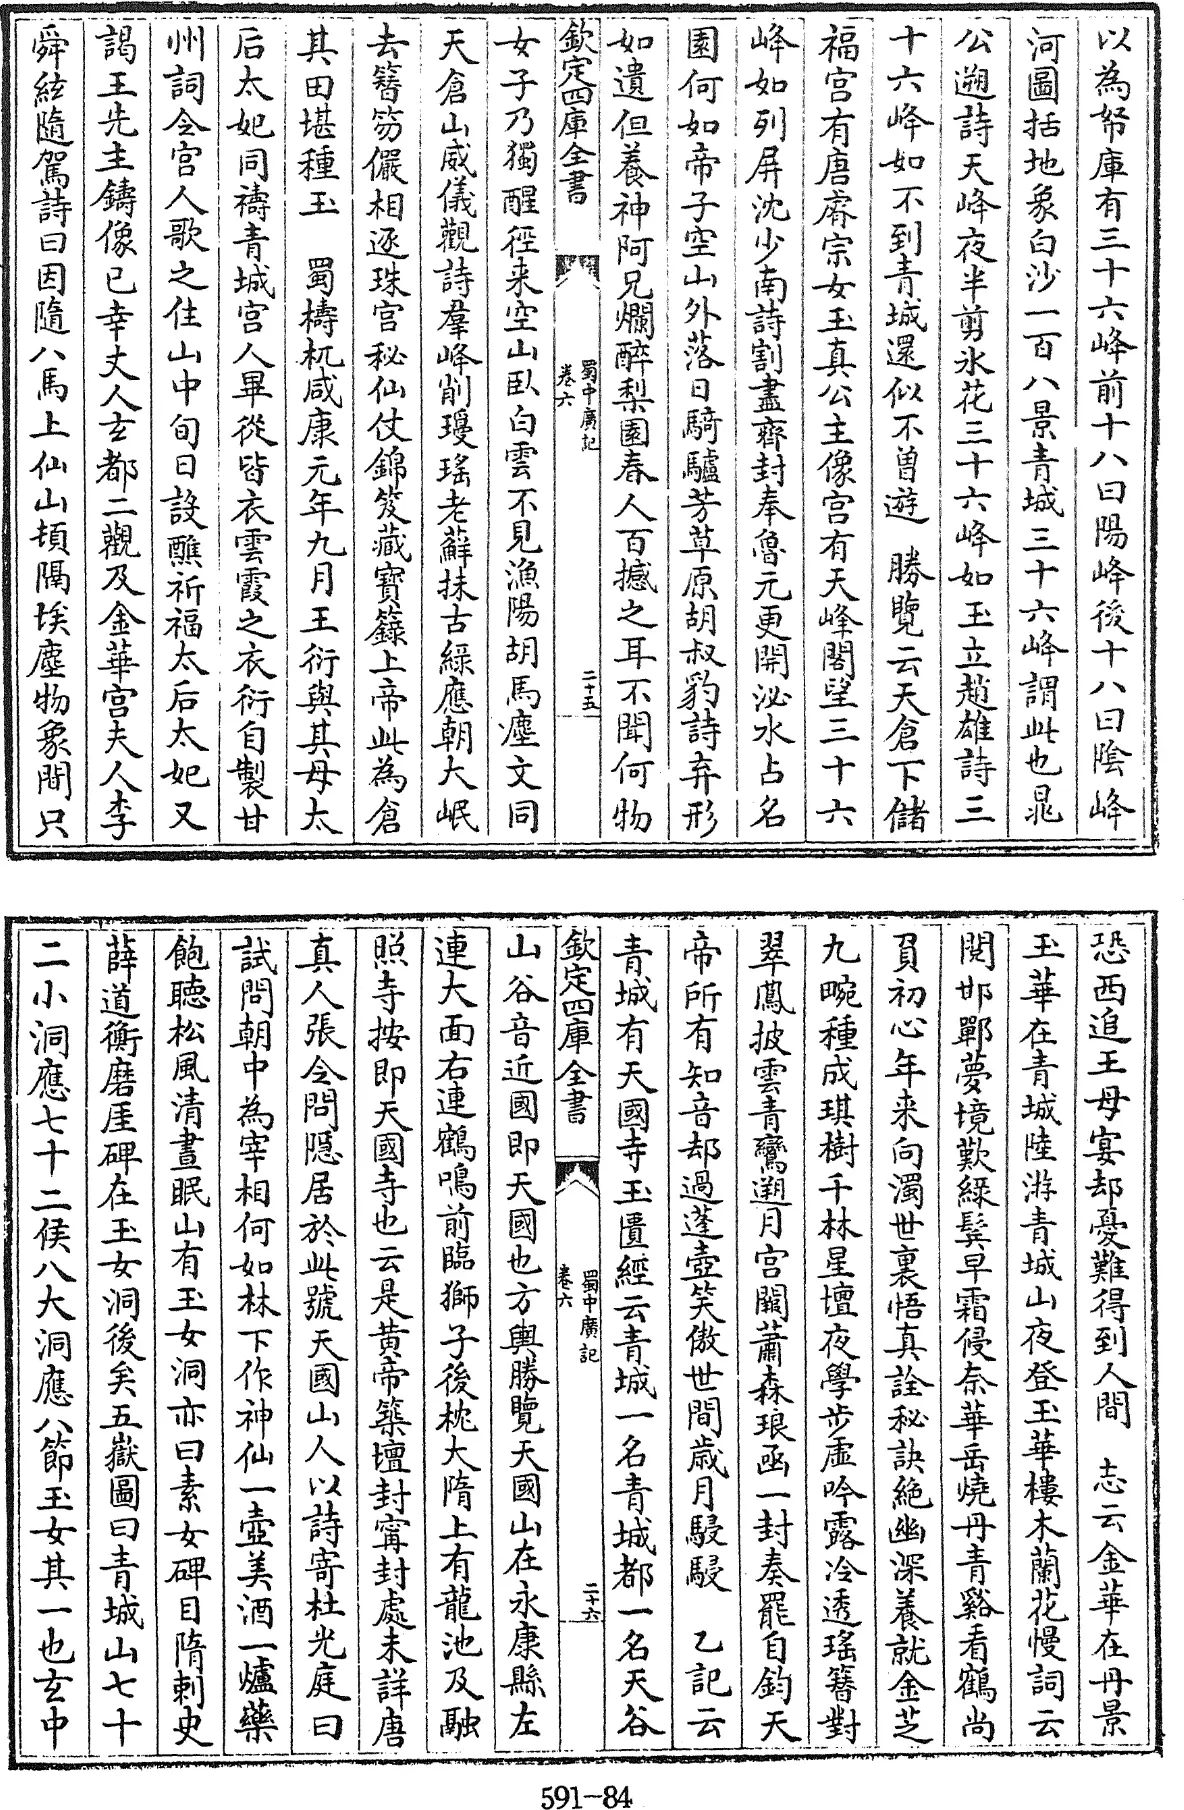 以為帑庫有三十六峰前十八曰陽峰後十八曰陰峰
河圖括地象白沙一百八景青城三十六峰謂此也晁
公遡詩天峰夜半剪氷花三十六峰如玉立趙雄詩三
十六峰如不到青城還似不曽遊　勝覽云天倉下儲
福宫有唐睿宗女玉真公主像宫有天峰閣望三十六
峰如列屏沈少南詩割盡齊封奉魯元更開泌水占名
園何如帝子空山外落日騎驢芳草原胡叔豹詩弃形
如遺但養神阿兄爛醉梨園春人百撼之耳不聞何物
欽定四庫全書
蜀中廣記
卷六
二十五
女子乃獨醒徑来空山臥白雲不見漁陽胡馬塵文同
天倉山威儀觀詩羣峰削瓊瑤老蘚抹古綠應朝大岷
去簪笏儼相逐珠宫秘仙仗錦笈藏寶籙上帝此為倉
其田堪種玉　蜀檮杌咸康元年九月王衍與其母太
后太妃同禱青城宫人畢從皆衣雲霞之衣衍自製甘
州詞令宫人歌之住山中旬日設醮祈福太后太妃又
謁王先主鑄像已幸丈人玄都二觀及金華宫夫人李
舜絃隨駕詩曰因隨八馬上仙山頓隔埃塵物象閒只
恐西追王母宴却憂難得到人間　志云金華在丹景
玉華在青城陸游青城山夜登玉華樓木蘭花慢詞云
閱邯鄲夢境歎綠鬂早霜侵奈華岳燒丹青谿看鶴尚
負初心年来向濁世裏悟真詮秘訣絶幽深養就金芝
九畹種成琪樹千林星壇夜學步虛吟露冷透瑤簪對
翠鳳披雲青鸞遡月宫闕蕭森琅函一封奏罷自鈞天
帝所有知音却過蓬壺笑傲世間歲月駸駸　乙記云
青城有天國寺玉匱經云青城一名青城都一名天谷
欽定四庫全書
蜀中廣記
卷六
二十六
山谷音近國即天國也方輿勝覽天國山在永康縣左
連大面右連鶴鳴前臨獅子後枕大隋上有龍池及融
照寺按即天國寺也云是黄帝築壇封寗封處未詳唐
真人張令問隱居於此號天國山人以詩寄杜光庭曰
試問朝中為宰相何如林下作神仙一壺美酒一爐藥
飽聽松風清晝眠山有玉女洞亦曰素女碑目隋刺史
薛道衡磨厓碑在玉女洞後矣五嶽圖曰青城山七十
二小洞應七十二侯八大洞應八節玉女其一也玄中
591-84